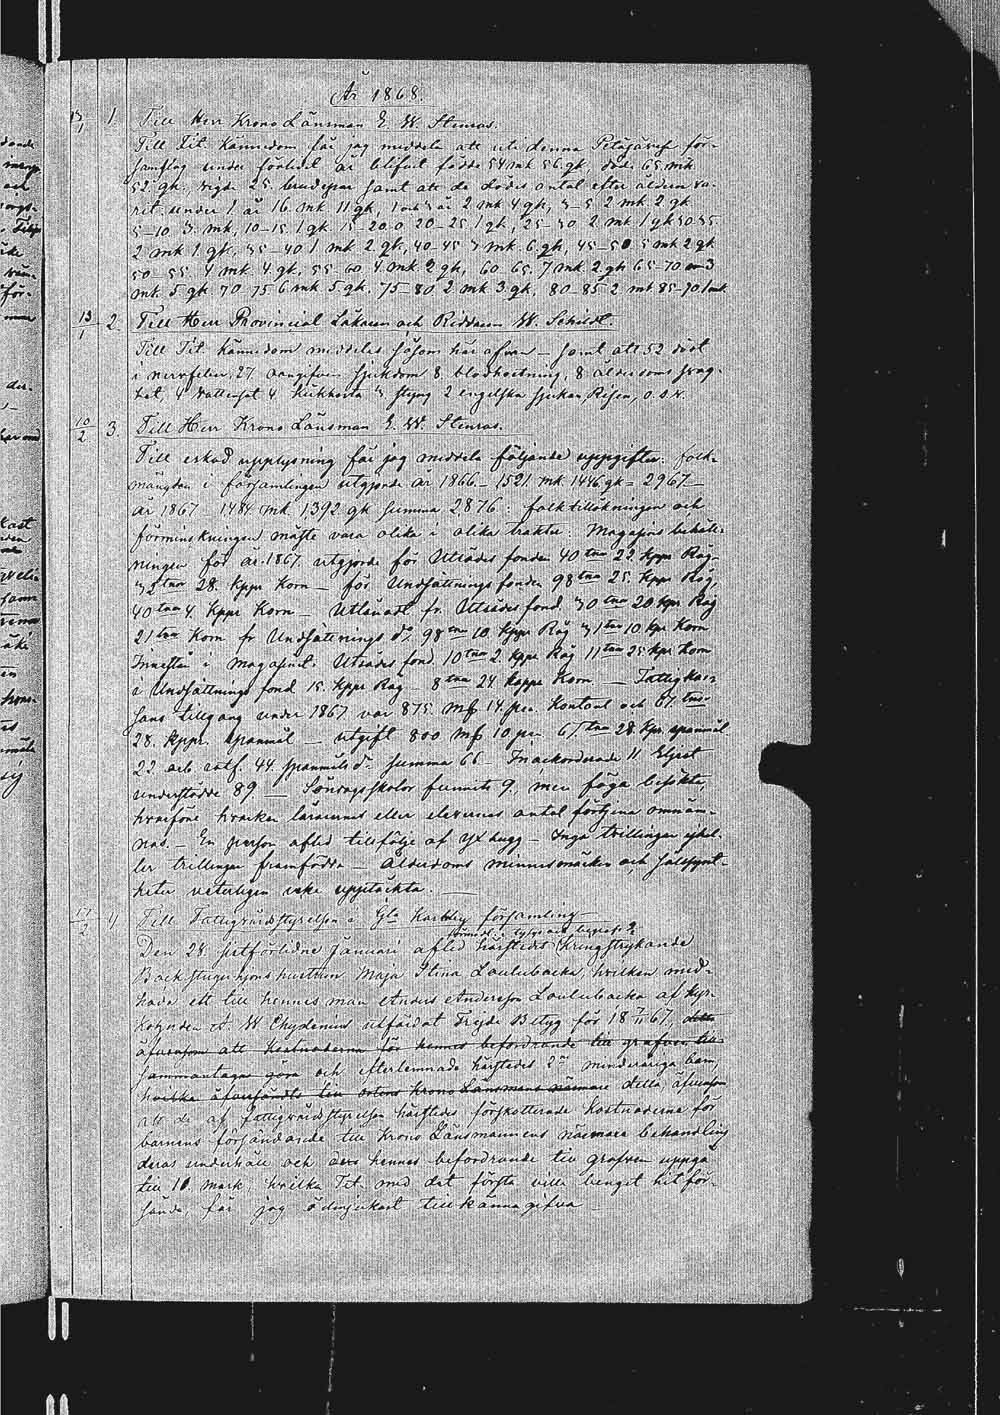 År 1868.
13/1 1. Till Herr Krono Länsman E. W. Stenros.
Till Tit. kännedom får jag meddela att uti denna Petäjärvi för-
samling under förlidet år blifvit födde 54 mk 56. gk, döde 65 mk
52 gk, vigde 25 brudepar samt att de dödes antal efter åldern va-
rit: under 1 år 16 mk 11 gk, 1 och 3 år 2 mk 4 gk, 3-5 2 mk 2 gk
5-10 3. mk, 10-15 1 gk 15-20 0 20-25 1 gk, 25-30 2 mk 1 gk 30 35
2 mk 1. gk, 35-40 1 mk 2 gk, 40-45 3 mk. 6. gk, 45-50 5 mk 2 gk
50-55. 4 mk. 4 gk. 55-60 4. mk 2 gk, 60 65. 7 mk. 2. gk 65-70 3
mk. 5 gk 70 75 6 mk 5. gk. 75-80 2 mk 3. gk, 80-85 2 mk 85-90 1 mk
13/1 2 Till Herr Provincial Läkaren och Riddaren W. Schildt.
Till Tit. kännedom meddelas såsom här ofvan – samt att 52 dödt
i nervfeber, 27 oangifven sjukdom 8. blodhostning, 8 ålderdoms svag-
het, 4 vattensot 4 kikhosta 3 styng 2 engelska sjukan, Risen, o.s.v.
10/2 3. Till Herr Krono Länsman E. W. Stenros.
Till eskad upplysning får jag meddela följande uppgifter. folk-
mängden i församlingen utgjorde år 1866 – 1521. mk 1446 gk = 2967 –
år 1867 1484 mk 1392 gk summa 2876: folktillökningen och
förminskningen måste vara olika i olika trakter: Magasins behåll-
ningen för år 1867. utgjorde för Utsädes fonden 40 tnr 22. kppr Råg
32 tnr 28. kppr Korn – för Undsättnings fonden 98 tnr 25. kppr Råg,
40 tnr 4. kppr Korn – Utlånadt fr. Utsädes fond. 30 tnr 20 kpr Råg
21 tnr Korn fr Undsättnings do 98 tnr 10. kppr Råg 31 tnr 10 kpr Korn
Innestår i magasinet. Utsädes fond. 10 tnr 2. kppr Råg 11 tnr 28 kpr Korn
i Undsättnings fond 15. kppr Råg – 8 tnr 24 kappr Korn – Fattigkas-
sans tillgang under 1867 var 875. mk 14 pen. kontant och 67. tnr
28. kppr. spanmål – utgift 800 mk 10 pen 67 tnr 28 kpr spanmål
22. erh. 44 spanmåls do summa 66 – Inackorderade 11
understödde 89 – Söndagsskolor funnits 9, men föga besökte,
hvarföre hvarken lärarnes eller elevernas antal förtjena omnäm-
nas. – En person afled tillfölje af yxhugg – Inga tvillingar ej hel-
ler trillingar framfödda – Ålderdoms minnesmärken och sällsynt-
heter veterligen icke upptäckta. –
17/2 4 Till Fattigvårdsstyrelsen i Gla Karleby församling
Den 28 sistförlidne Januari afled härstedes kringstrykande
Backstugehjons hustrun Maja Stina Loulubacka, hvilken med-
hade ett till hennes man Anders Andersson Louluback af Kyr-
koherden A W Chydenius utfärdat Frejde Betyg för 18 7/11 67, detta
äfvensom att kostnaderna för hennes befordrande till grafven till
sammantagen göra och efterlemnade härstedes 2ne minderåriga barn,
hvilka äfversändts till ortens Krono Länsmans närmare detta, äfvensom
att de af Fattigvårdsstyrelsen härstedes förskotterade kostnaderna för
barnens försändande till Krono Länsmannens närmare behandling
deras underhåll och hennes befordrande till grafven uppgå
till 10 mark, hvilka Tit. med det första ville benäget hit för-
sända, får jag ödmjukast tillkännagifva –